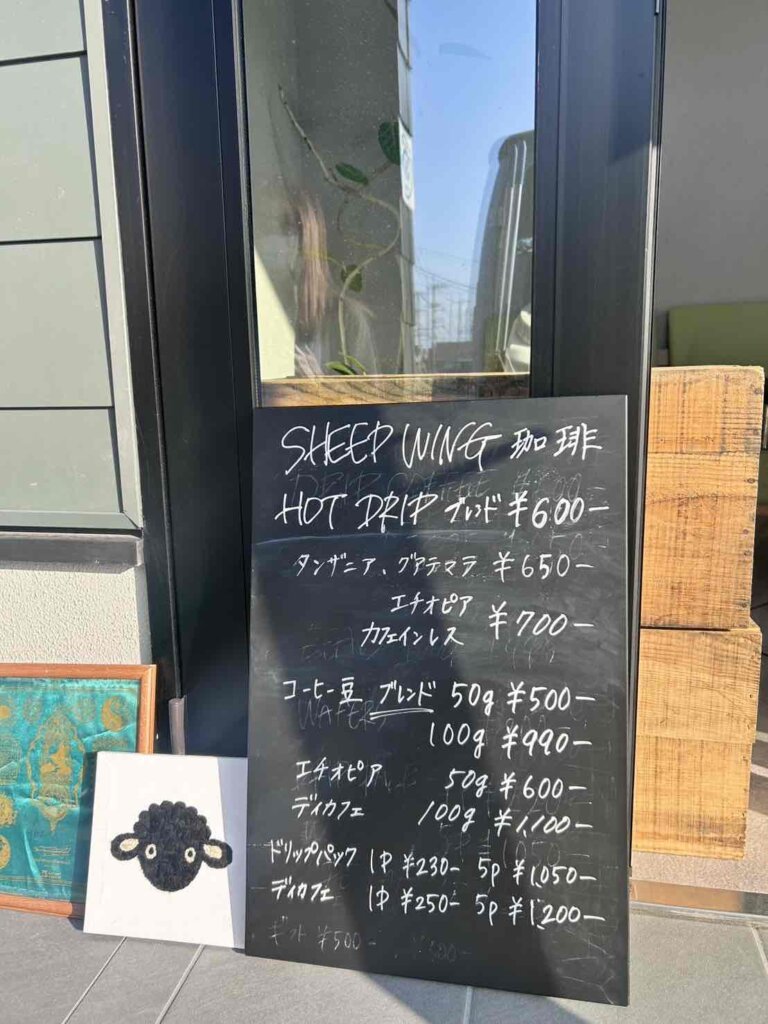 SHEEP WING 珈琲
HOT DRIP ブレンド ¥600-
タンザニア、グアテマラ ¥650-
エチオピア
カフェインレス ¥700-
コーヒー豆 ブレンド 50g ¥500-
100g ¥990-
エチオピア 50g ¥600-
ディカフェ 100g ¥1,100-
ドリップパック 1P ¥230- 5P ¥1,050-
ディカフェ 1P ¥250- 5P ¥1,200-
ギフト ¥500-